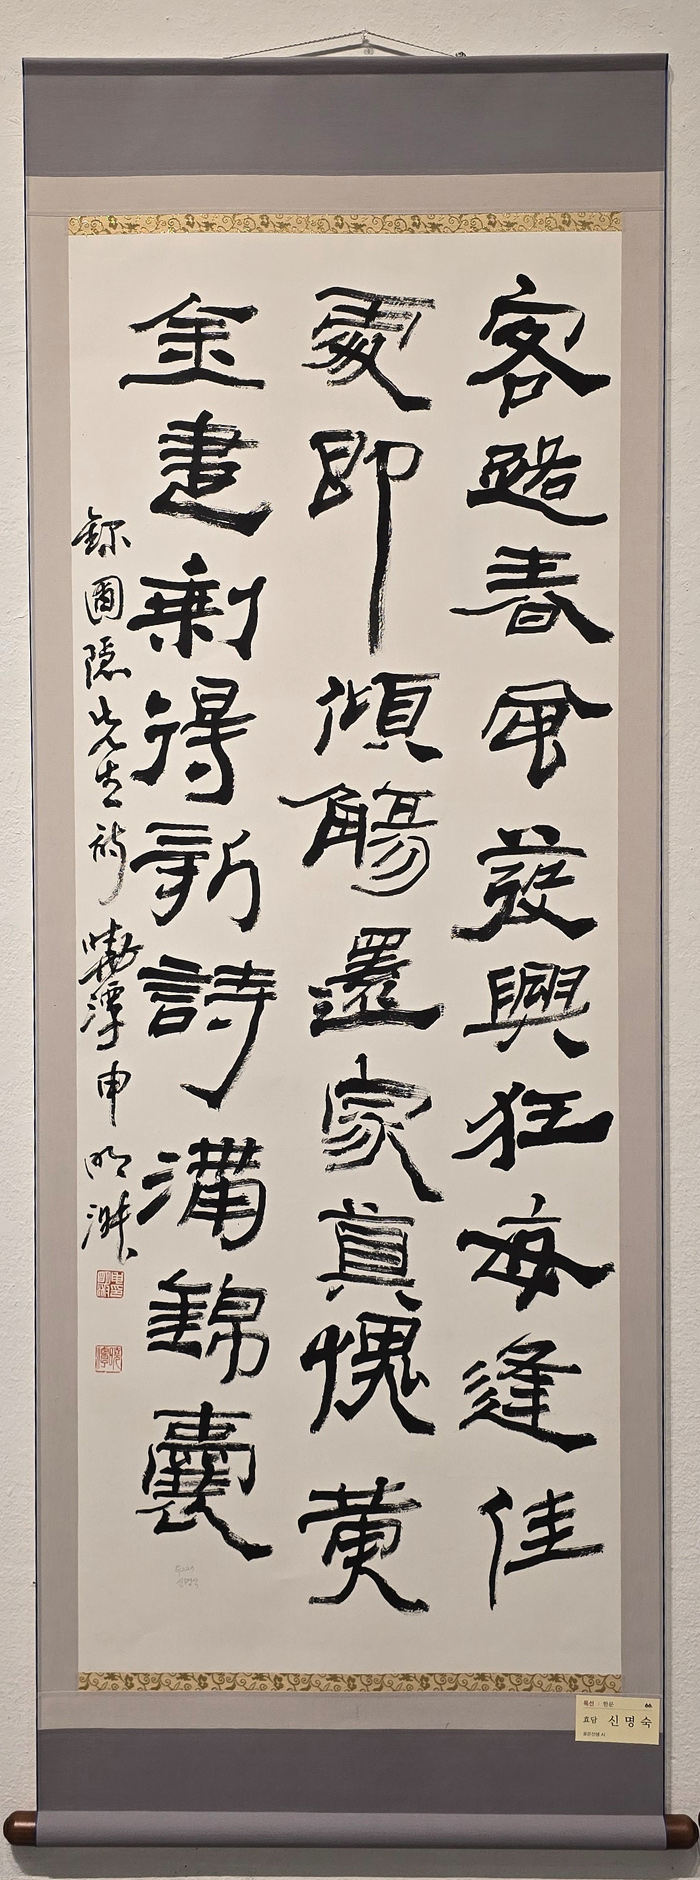 客路春風發興狂每逢佳
處即傾觴還家莫愧黃
金盡剩得新詩滿錦囊
錄圃隱先生詩 曉潭申明淑
특선 | 한문
효담 신명숙
포은선생 시